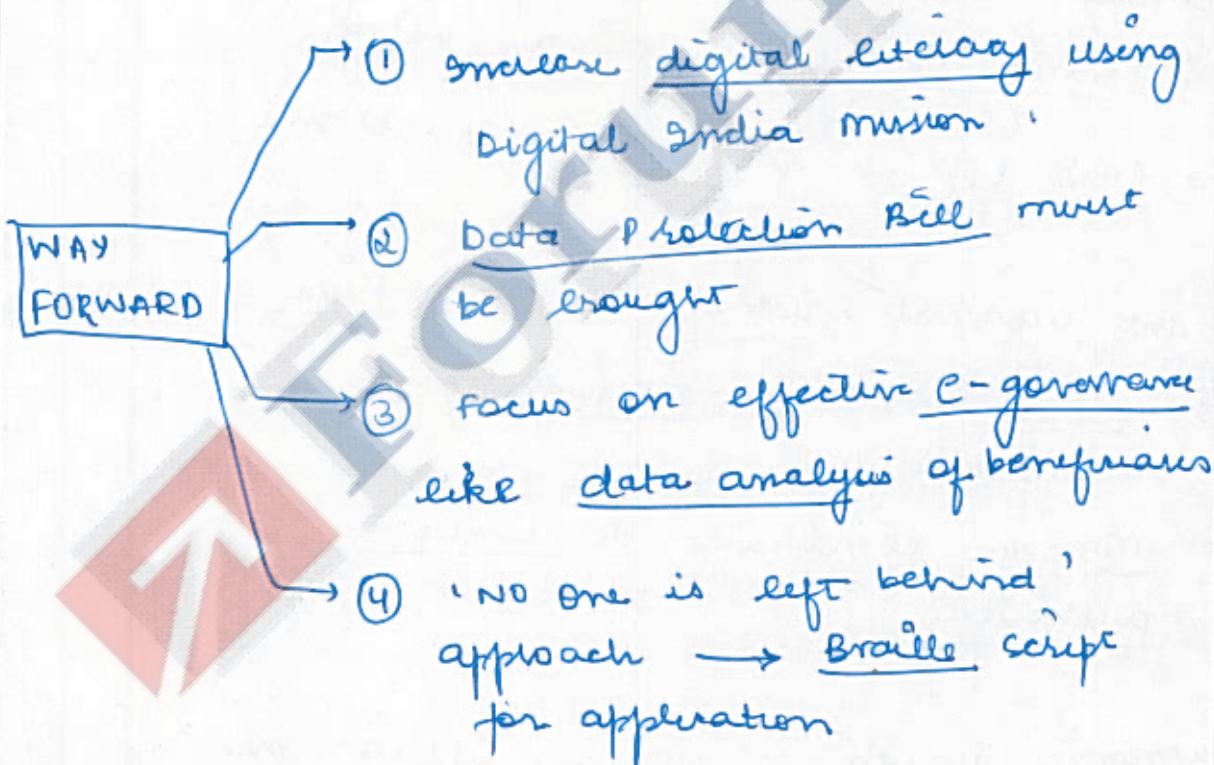 ① Increase digital literacy using
Digital India mission.
WAY
FORWARD
② Data Protection Bill must
be brought
③ Focus on effective e-governance
like data analysis of beneficiaries
④ 'No one is left behind'
approach → Braille script
for application
Forum